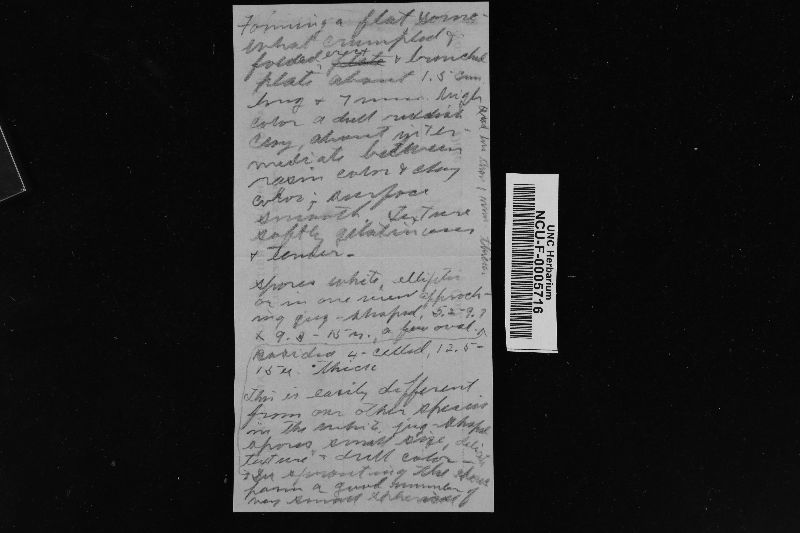 Forming a flat some-
what crumpled &
folded erect plate & bunched
plate about 1.5 cm
long & 7 mm. high
color a dull reddish
clay, about inter-
mediate between
rosin color & clay
color; surface
smooth, texture
softly gelatinous
& tender.
and less than 1 mm thick
Spores white, elliptic
or in one view approch-
ing jug-shaped, 5.2-9.
x 9.3-15 µ., a few oval.
Basidia 4-celled, 12.5-
15 µ thick
This is easily different
from our other species
in the white, jug-shaped
spores, small size, delicate
texture & dull color -
In sprouting the spores
form a good number of
very small spherical
UNC Herbarium
NCU-F-0005716